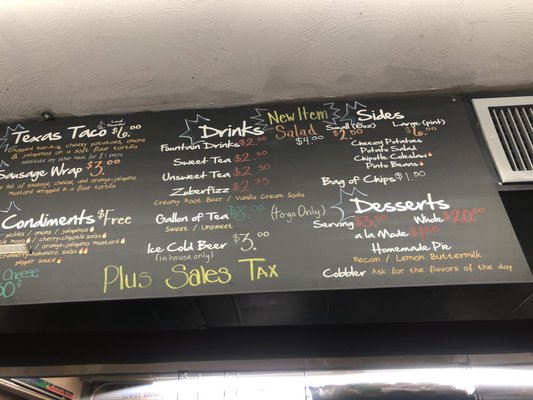 Texas Taco $6.00
Chopped hot-link, cheezy potatoes, onions
& jalapenos on a soft flour tortilla
Substitute any other meat for $1 extra
Sausage Wrap $3.00
link of sausage, cheese and orange-jalapeno
mustard wrapped in a flour tortilla
Condiments $Free
pickles / onions / jalapenos
Mayo / cherry-chipotle salsa
/ orange-jalapeno mustard
cranberry-habanero salsa
pepper sauce
Cheese
50¢
Drinks
Fountain Drinks $2.50
Sweet Tea $2.50
Unsweet Tea $2.50
Zuberfizz $2.75
Creamy Root Beer / Vanilla Cream Soda
Gallon of Tea $8.00 (to go Only)
Sweet / Unsweet
Ice Cold Beer $3.00
(in house only)
Plus Sales Tax
New Item
Salad
$4.00
Sides
Small (6oz) $2.50
Large (pint) $6.00
Cheezy Potatoes
Potato Salad
Chipotle Coleslaw
Pinto Beans
Bag of Chips $1.00
Desserts
Serving $3.50 Whole $20.00
a la Mode $1.50
Homemade Pie
Pecan / Lemon Buttermilk
Cobbler Ask for the flavors of the day